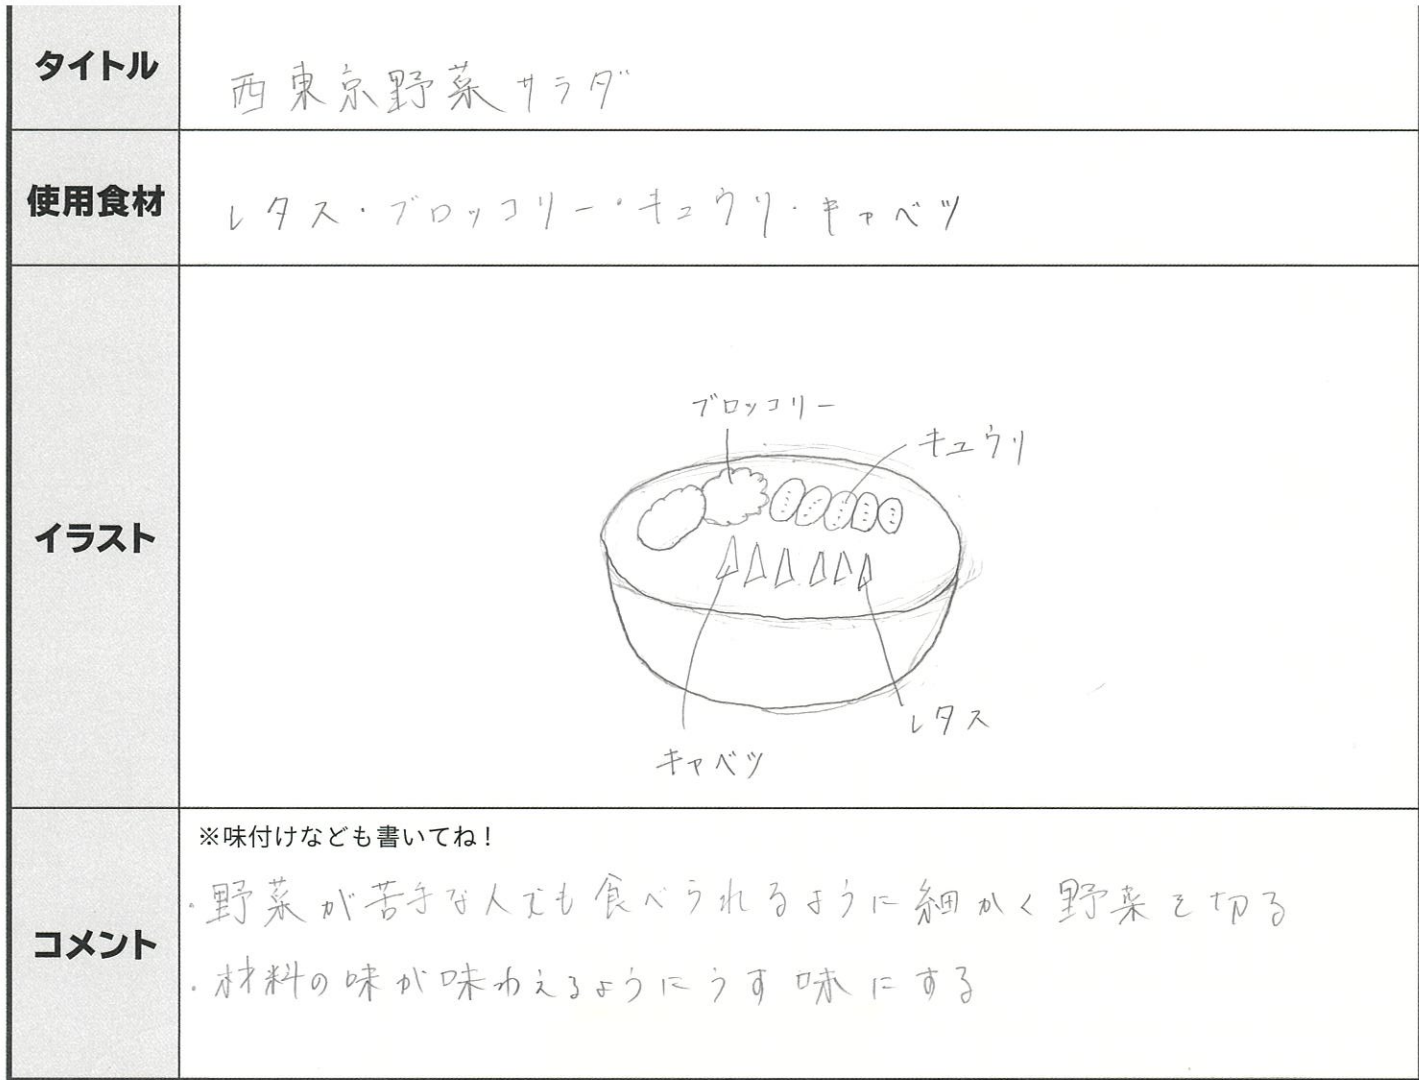 タイトル
西東京野菜サラダ
使用食材
レタス・ブロッコリー・キュウリ・キャベツ
イラスト
ブロッコリー
キュウリ
レタス
キャベツ
コメント
※味付けなども書いてね!
・野菜が苦手な人でも食べられるように細かく野菜を切る
・材料の味が味わえるようにうす味にする